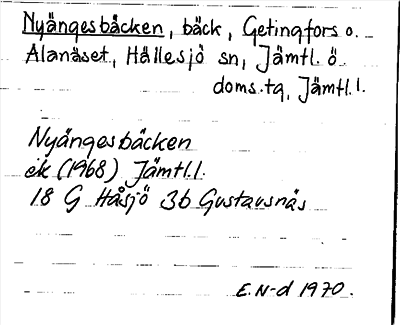 Nyängesbäcken, bäck, Getingfors o.
Alanäset, Hällesjö sn, Jämtl. ö.
doms.tg, Jämtl.l.
Nyängesbäcken
ek (1968) Jämtl.l.
18 G Håsjö 3b Gustavsnäs
E.N-d 1970.